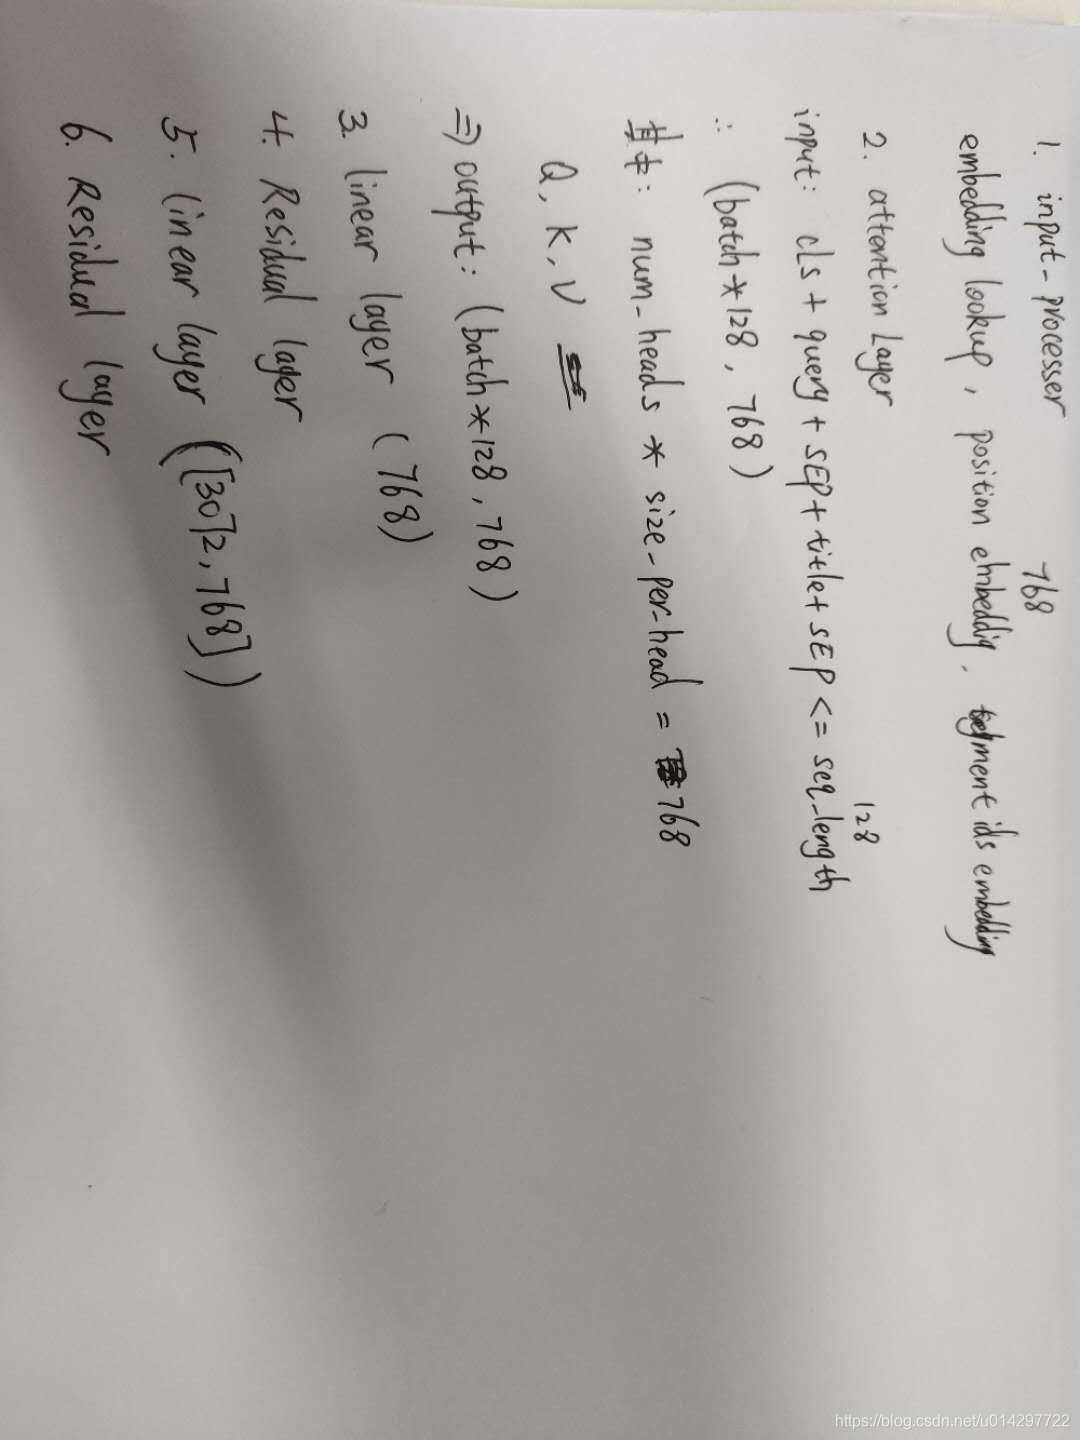 1. input-processer
768
embedding lookup, position embeddig, segment ids embedding
2. attention Layer
128
input: cls + query + SEP + title + SEP <= seq_length
∴ (batch*128, 768)
其中: num_heads * size-per-head = 768
Q, K, V
=> output: (batch*128, 768)
3. linear layer (768)
4. Residual layer
5. linear layer ([3072, 768])
6. Residual layer
https://blog.csdn.net/u014297722